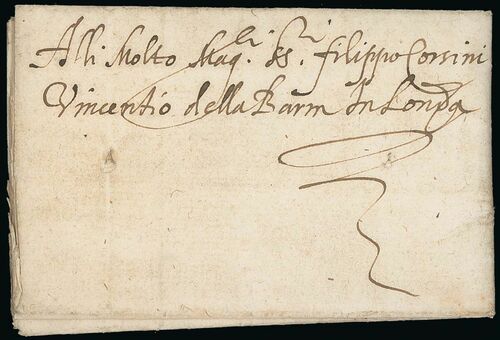 Alli Molto Mag.ci ss.ri filippo Corsini
Vincentio della Barm In Londa